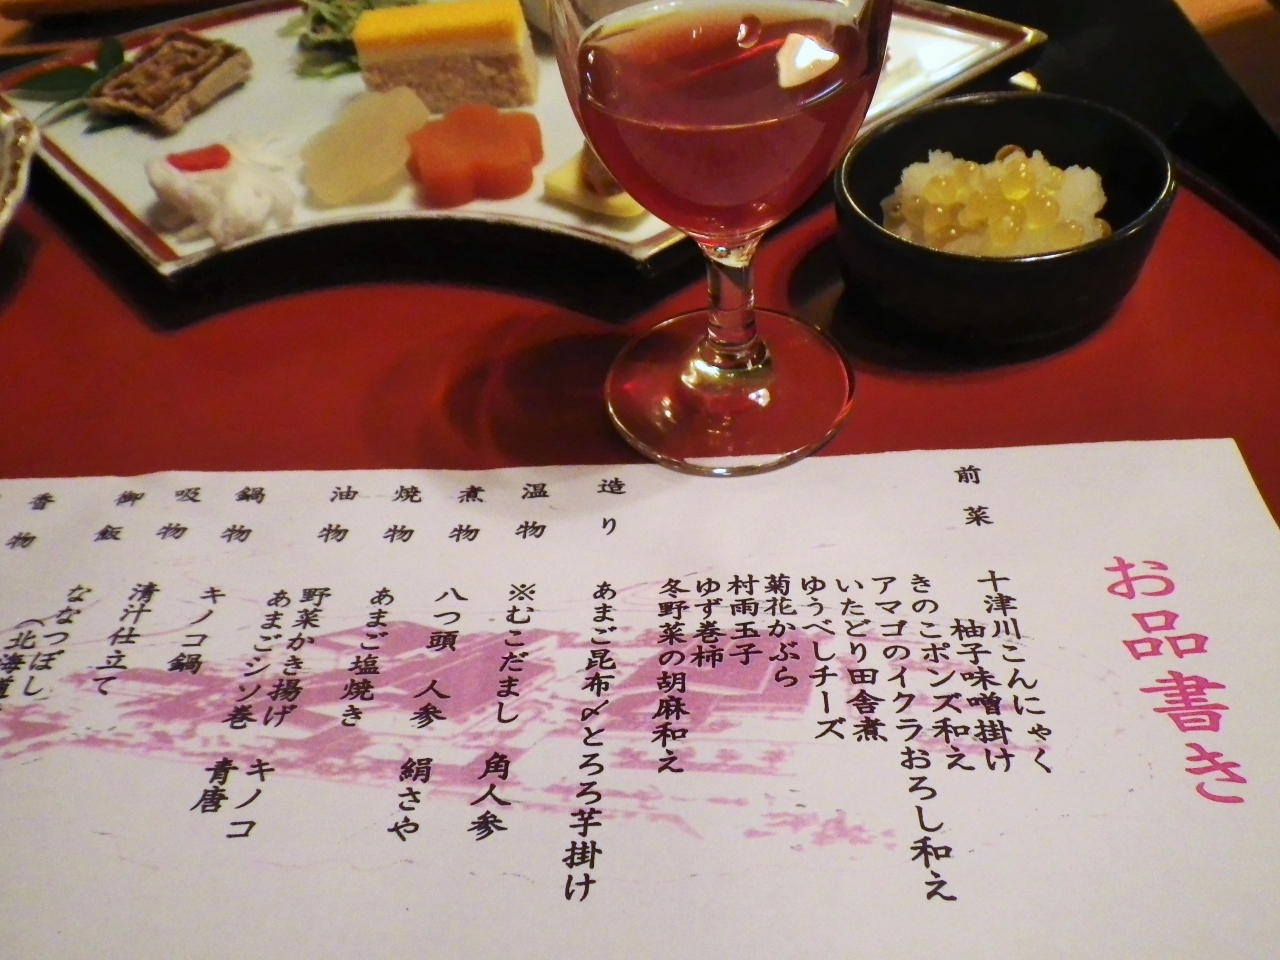 お品書き
前菜
十津川こんにゃく
柚子味噌掛け
きのこポンズ和え
アマゴのイクラおろし和え
いたどり田舎煮
ゆうべしチーズ
菊花かぶら
村雨玉子
ゆず巻柿
冬野菜の胡麻和え
造り
あまご昆布〆とろろ芋掛け
温物
※むこだまし 角人参
煮物
八つ頭 人参 絹さや
焼物
あまご塩焼き
油物
野菜かき揚げ キノコ
あまごシソ巻 青唐
鍋物
キノコ鍋
吸物
清汁仕立て
御飯
ななつぼし
(北海道
香物